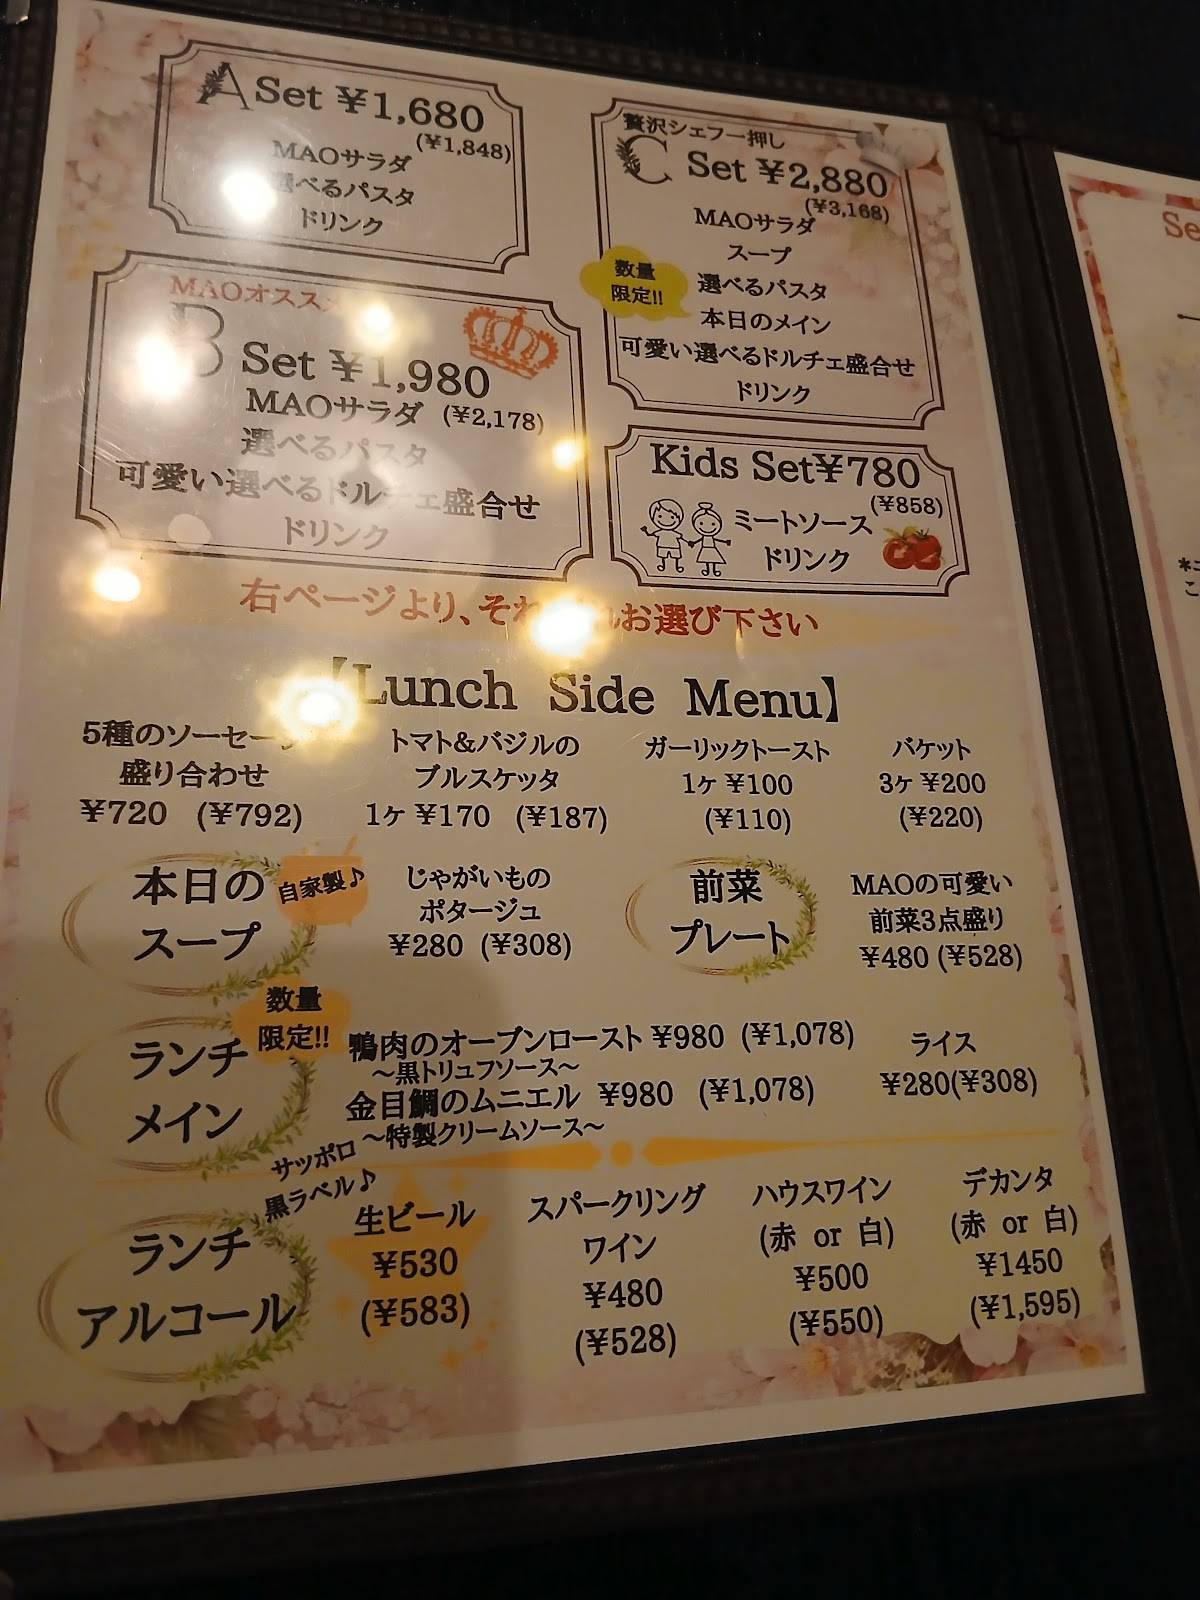 A Set ¥1,680
(¥1,848)
MAOサラダ
選べるパスタ
ドリンク
MAOオススメ
B Set ¥1,980
MAOサラダ (¥2,178)
選べるパスタ
可愛い選べるドルチェ盛合せ
ドリンク
贅沢シェフ一押し
C Set ¥2,880
(¥3,168)
MAOサラダ
スープ
数量
限定!!
選べるパスタ
本日のメイン
可愛い選べるドルチェ盛合せ
ドリンク
Kids Set¥780
(¥858)
ミートソース
ドリンク
右ページより、それぞれお選び下さい
【Lunch Side Menu】
5種のソーセージ
盛り合わせ
¥720 (¥792)
トマト&バジルの
ブルスケッタ
1ヶ ¥170 (¥187)
ガーリックトースト
1ヶ ¥100
(¥110)
バケット
3ヶ ¥200
(¥220)
本日の
スープ
自家製♪
じゃがいもの
ポタージュ
¥280 (¥308)
前菜
プレート
MAOの可愛い
前菜3点盛り
¥480 (¥528)
ランチ
メイン
数量
限定!!
鴨肉のオーブンロースト ¥980 (¥1,078)
～黒トリュフソース～
金目鯛のムニエル ¥980 (¥1,078)
～特製クリームソース～
ライス
¥280(¥308)
ランチ
アルコール
サッポロ
黒ラベル♪
生ビール
¥530
(¥583)
スパークリング
ワイン
¥480
(¥528)
ハウスワイン
(赤 or 白)
¥500
(¥550)
デカンタ
(赤 or 白)
¥1450
(¥1,595)
Se